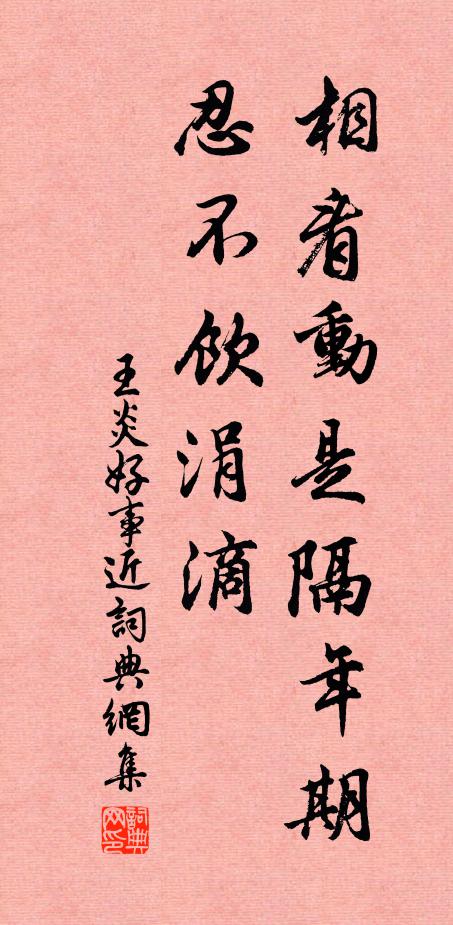 相看動是隔年期
忍不飲涓滴
王炎好事近詞典網集
詞典网印